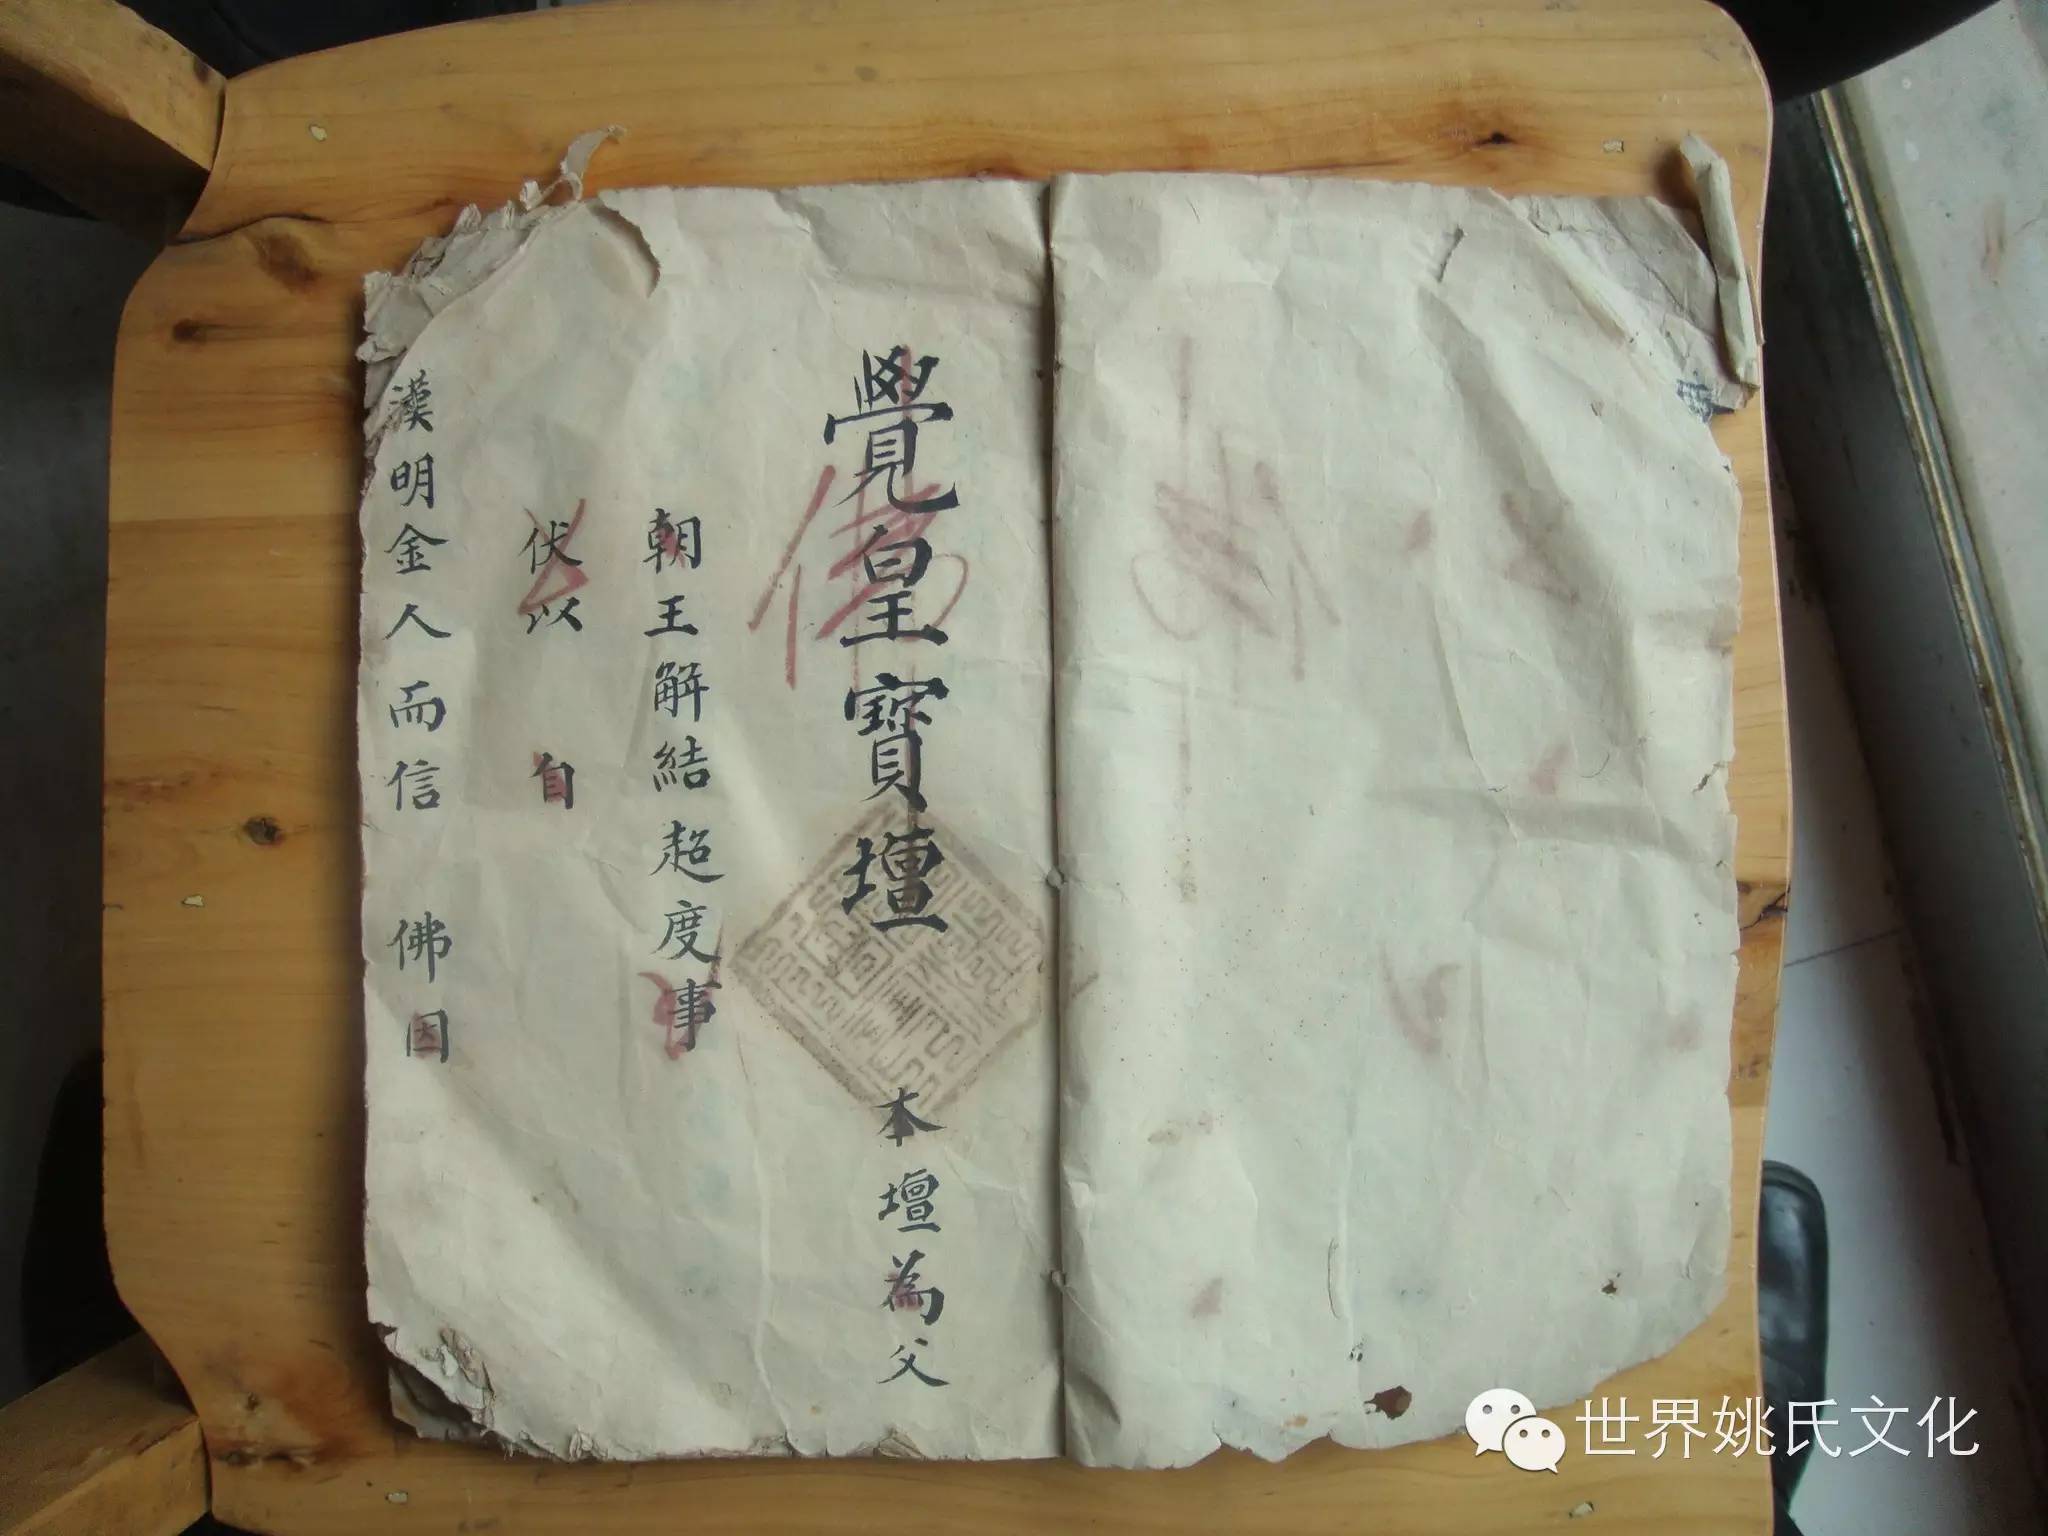 覺皇寶壇 本壇為父
朝王解結超度事
伏以 自
漢明金人而信 佛因
佛
世界姚氏文化